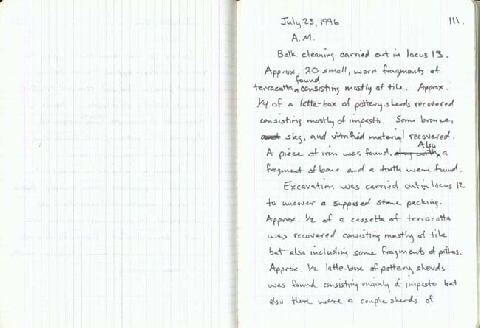 July 23, 1996 111.
A.M.
Balk cleaning carried out in locus 13.
Approx. 20 small, worn fragments of
terracotta found consisting mostly of tile. Approx.
1/4 of a letter-box of pottery sherds recovered
consisting mostly of impasto. Some bronze,
slag, and vitrified material recovered.
A piece of iron was found. Also a
fragment of bone and a tooth were found.
Excavation was carried out in locus 12
to uncover a supposed stone packing.
Approx. 1/2 of a cassetta of terracotta
was recovered consisting mostly of tile
but also including some fragments of pithos.
Approx. 1/2 letter-box of pottery sherds
was found consisting mainly of impasto but
also there were a couple sherds of